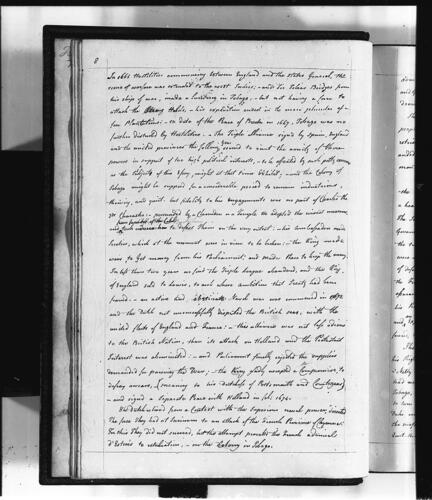 8
In 1666 Hostilities commencing between England and the States General, the
scene of warfare was extended to the West Indies; - and Sir Tobias Bridges from
his ships of war, made a landing in Tobago, - but not having a force to
attack the strong Holds, - his expedition ended in the mere plunder of a
few Plantations: - to date of the Peace of Breda in 1667, Tobago was no
further disturbed by Hostilities. - The Triple Alliance signed by Spain, England
and the united provinces the following year seemed to unite the amity of those
powers in support of too high political interests, - to be affected by such petty
as the subjects of this Essay, might at that time exhibit; - and the Colony of
Tobago might be supposed for a considerable period to remain industrious,
thriving, and quiet. but fidelity to his engagements was no part of Charles the
2ds Character; - 
to defeat them on the very outset: - his ambassadors
which at the moment over in view to be taken: - the King made
wars to get money from his Parliament; and made Peace to keep the money.
In less than two years we find the triple league abandoned, and this King
of England sold to Louis, to aid whose ambition that Treaty had been
formed: - an active and obstinate Naval war was commenced in 1672
and the Dutch not unsuccessfully disputed the British seas, with the
united fleets of England and France: - this alliance was not less odious
to the British Nation, than its attack on Holland and the Protestant
Interest was abominated: - and Parliament finally rejected the supplies
demanded for pursuing the War; - the King gladly accepted a Compromise, to
defray arrears, (
- and signed a separate Peace with Holland in feb. 1674.
The Dutch 
the force they had at Surinam to an attack of the French Province of Cayenne.
In this They did not succeed, but the attempt provoked the French admiral
d'Estrées to retaliation, - on the Colony in Tobago.